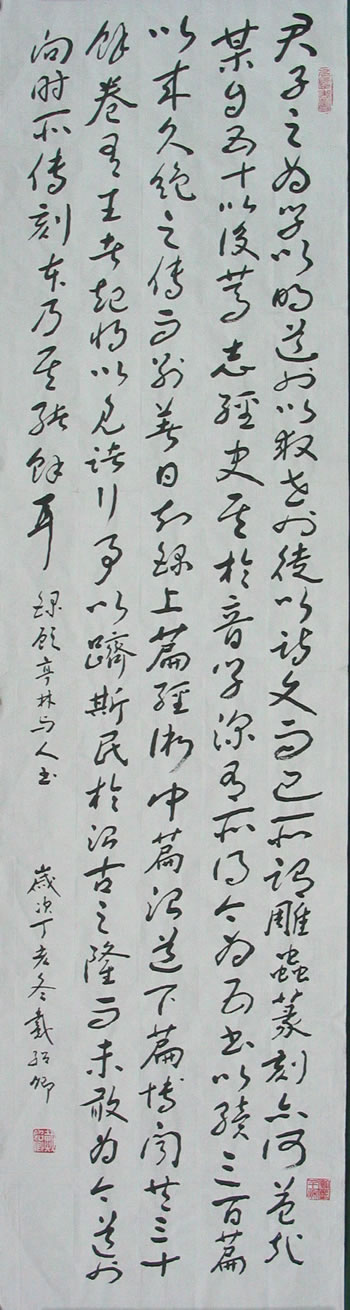 君子之为学以明道也以救世也徒以诗文而已所谓雕蟲篆刻亦何益哉
某自五十以後篤志經史其於音学深有所得今为五书以續三百篇
以来久绝之傳而别著日知録上篇經術中篇治道下篇博闻共三十
餘卷有王者起将以见诸行事以躋斯民於治古之隆而未敢为今道也
向时所传刻本乃其绪餘耳 録顾亭林与人书 歲次丁亥冬戴